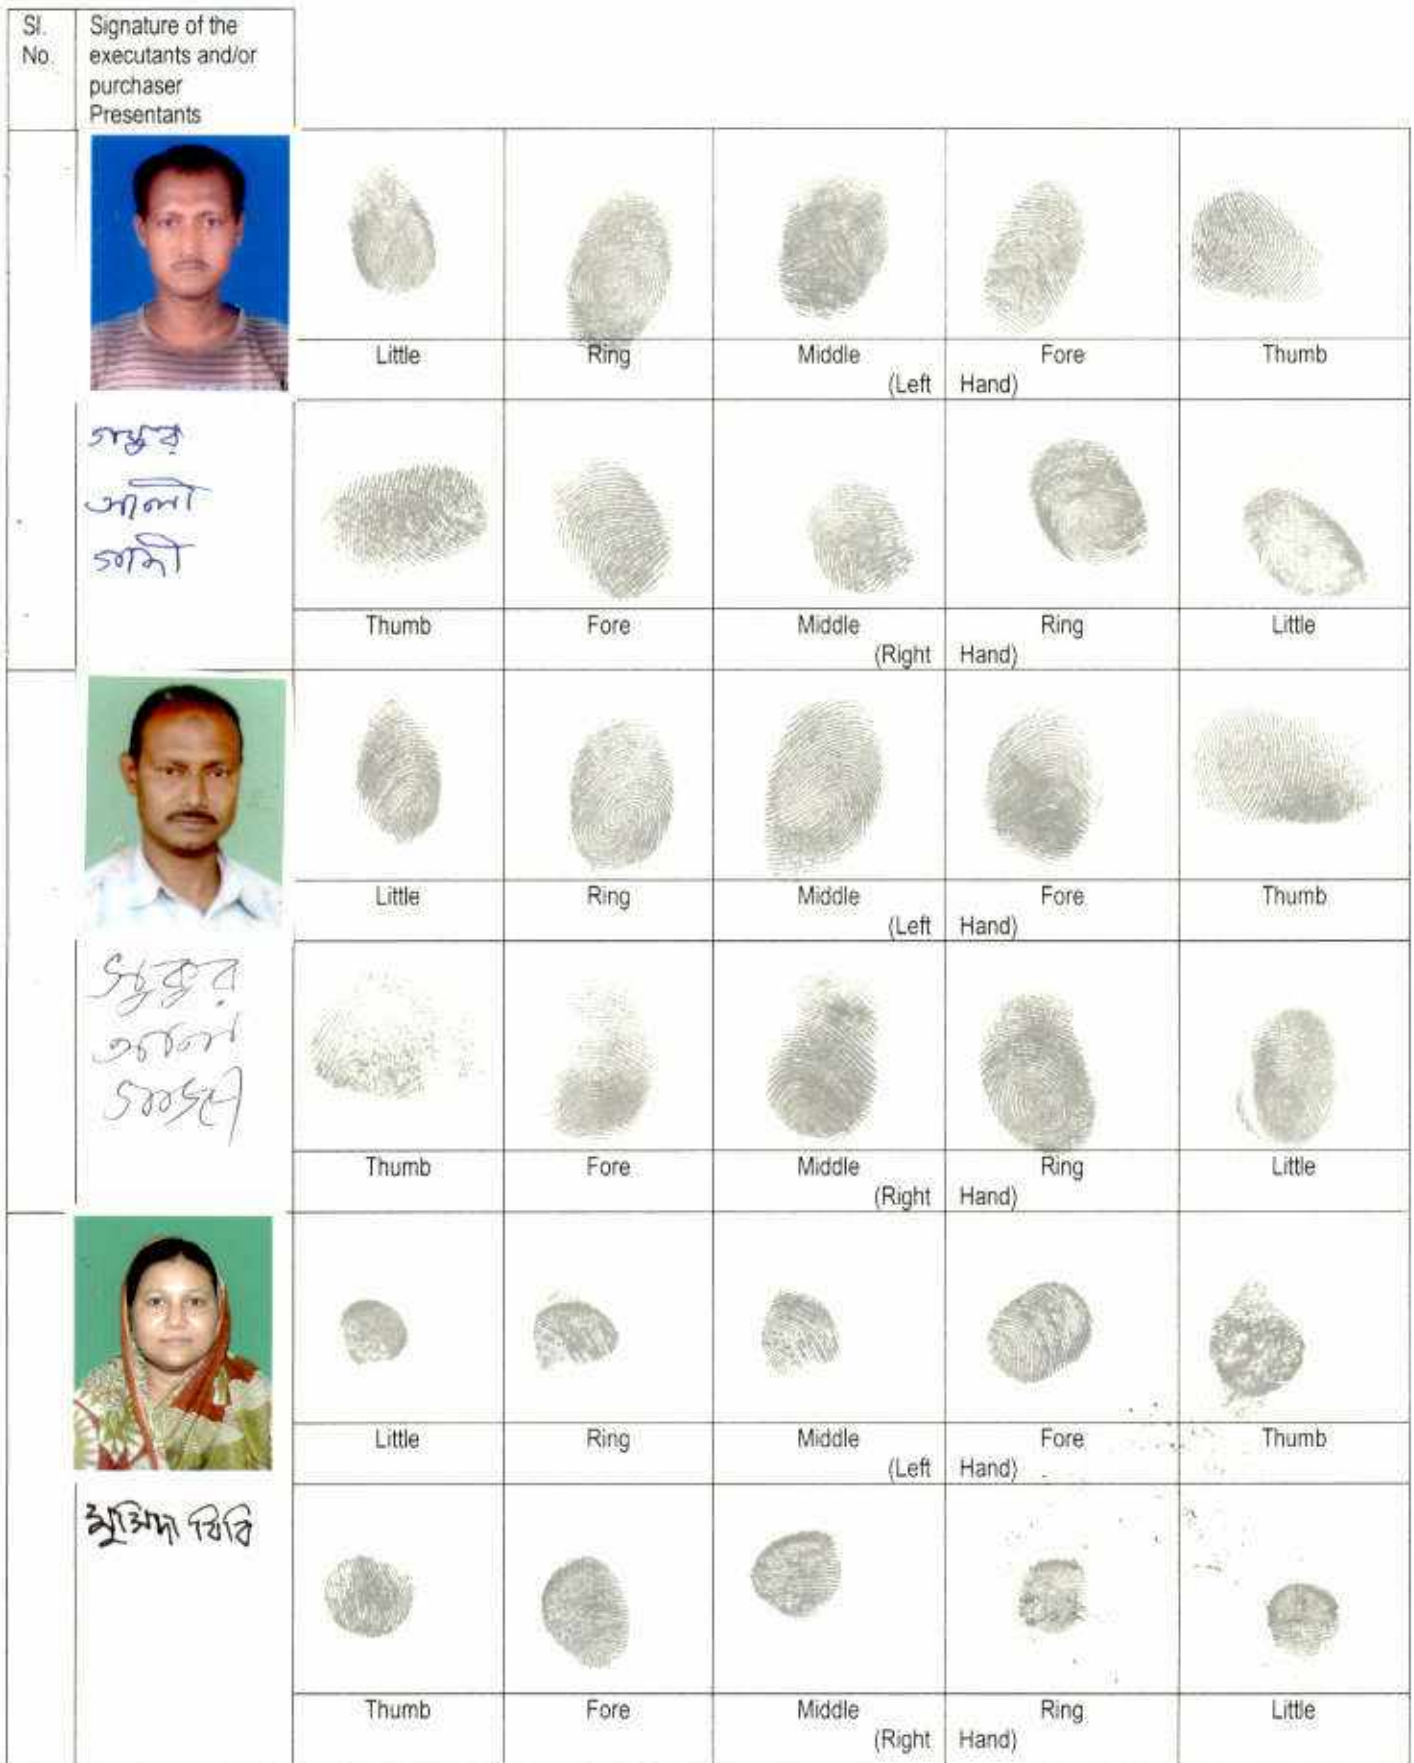 Sl. No.
Signature of the
executants and/or
purchaser
Presentants
Little Ring Middle Fore Thumb
(Left Hand)
আলী
Thumb Fore Middle Ring Little
(Right Hand)
Little Ring Middle Fore Thumb
(Left Hand)
আলী
Thumb Fore Middle Ring Little
(Right Hand)
Little Ring Middle Fore Thumb
(Left Hand)
বিবি
Thumb Fore Middle Ring Little
(Right Hand)